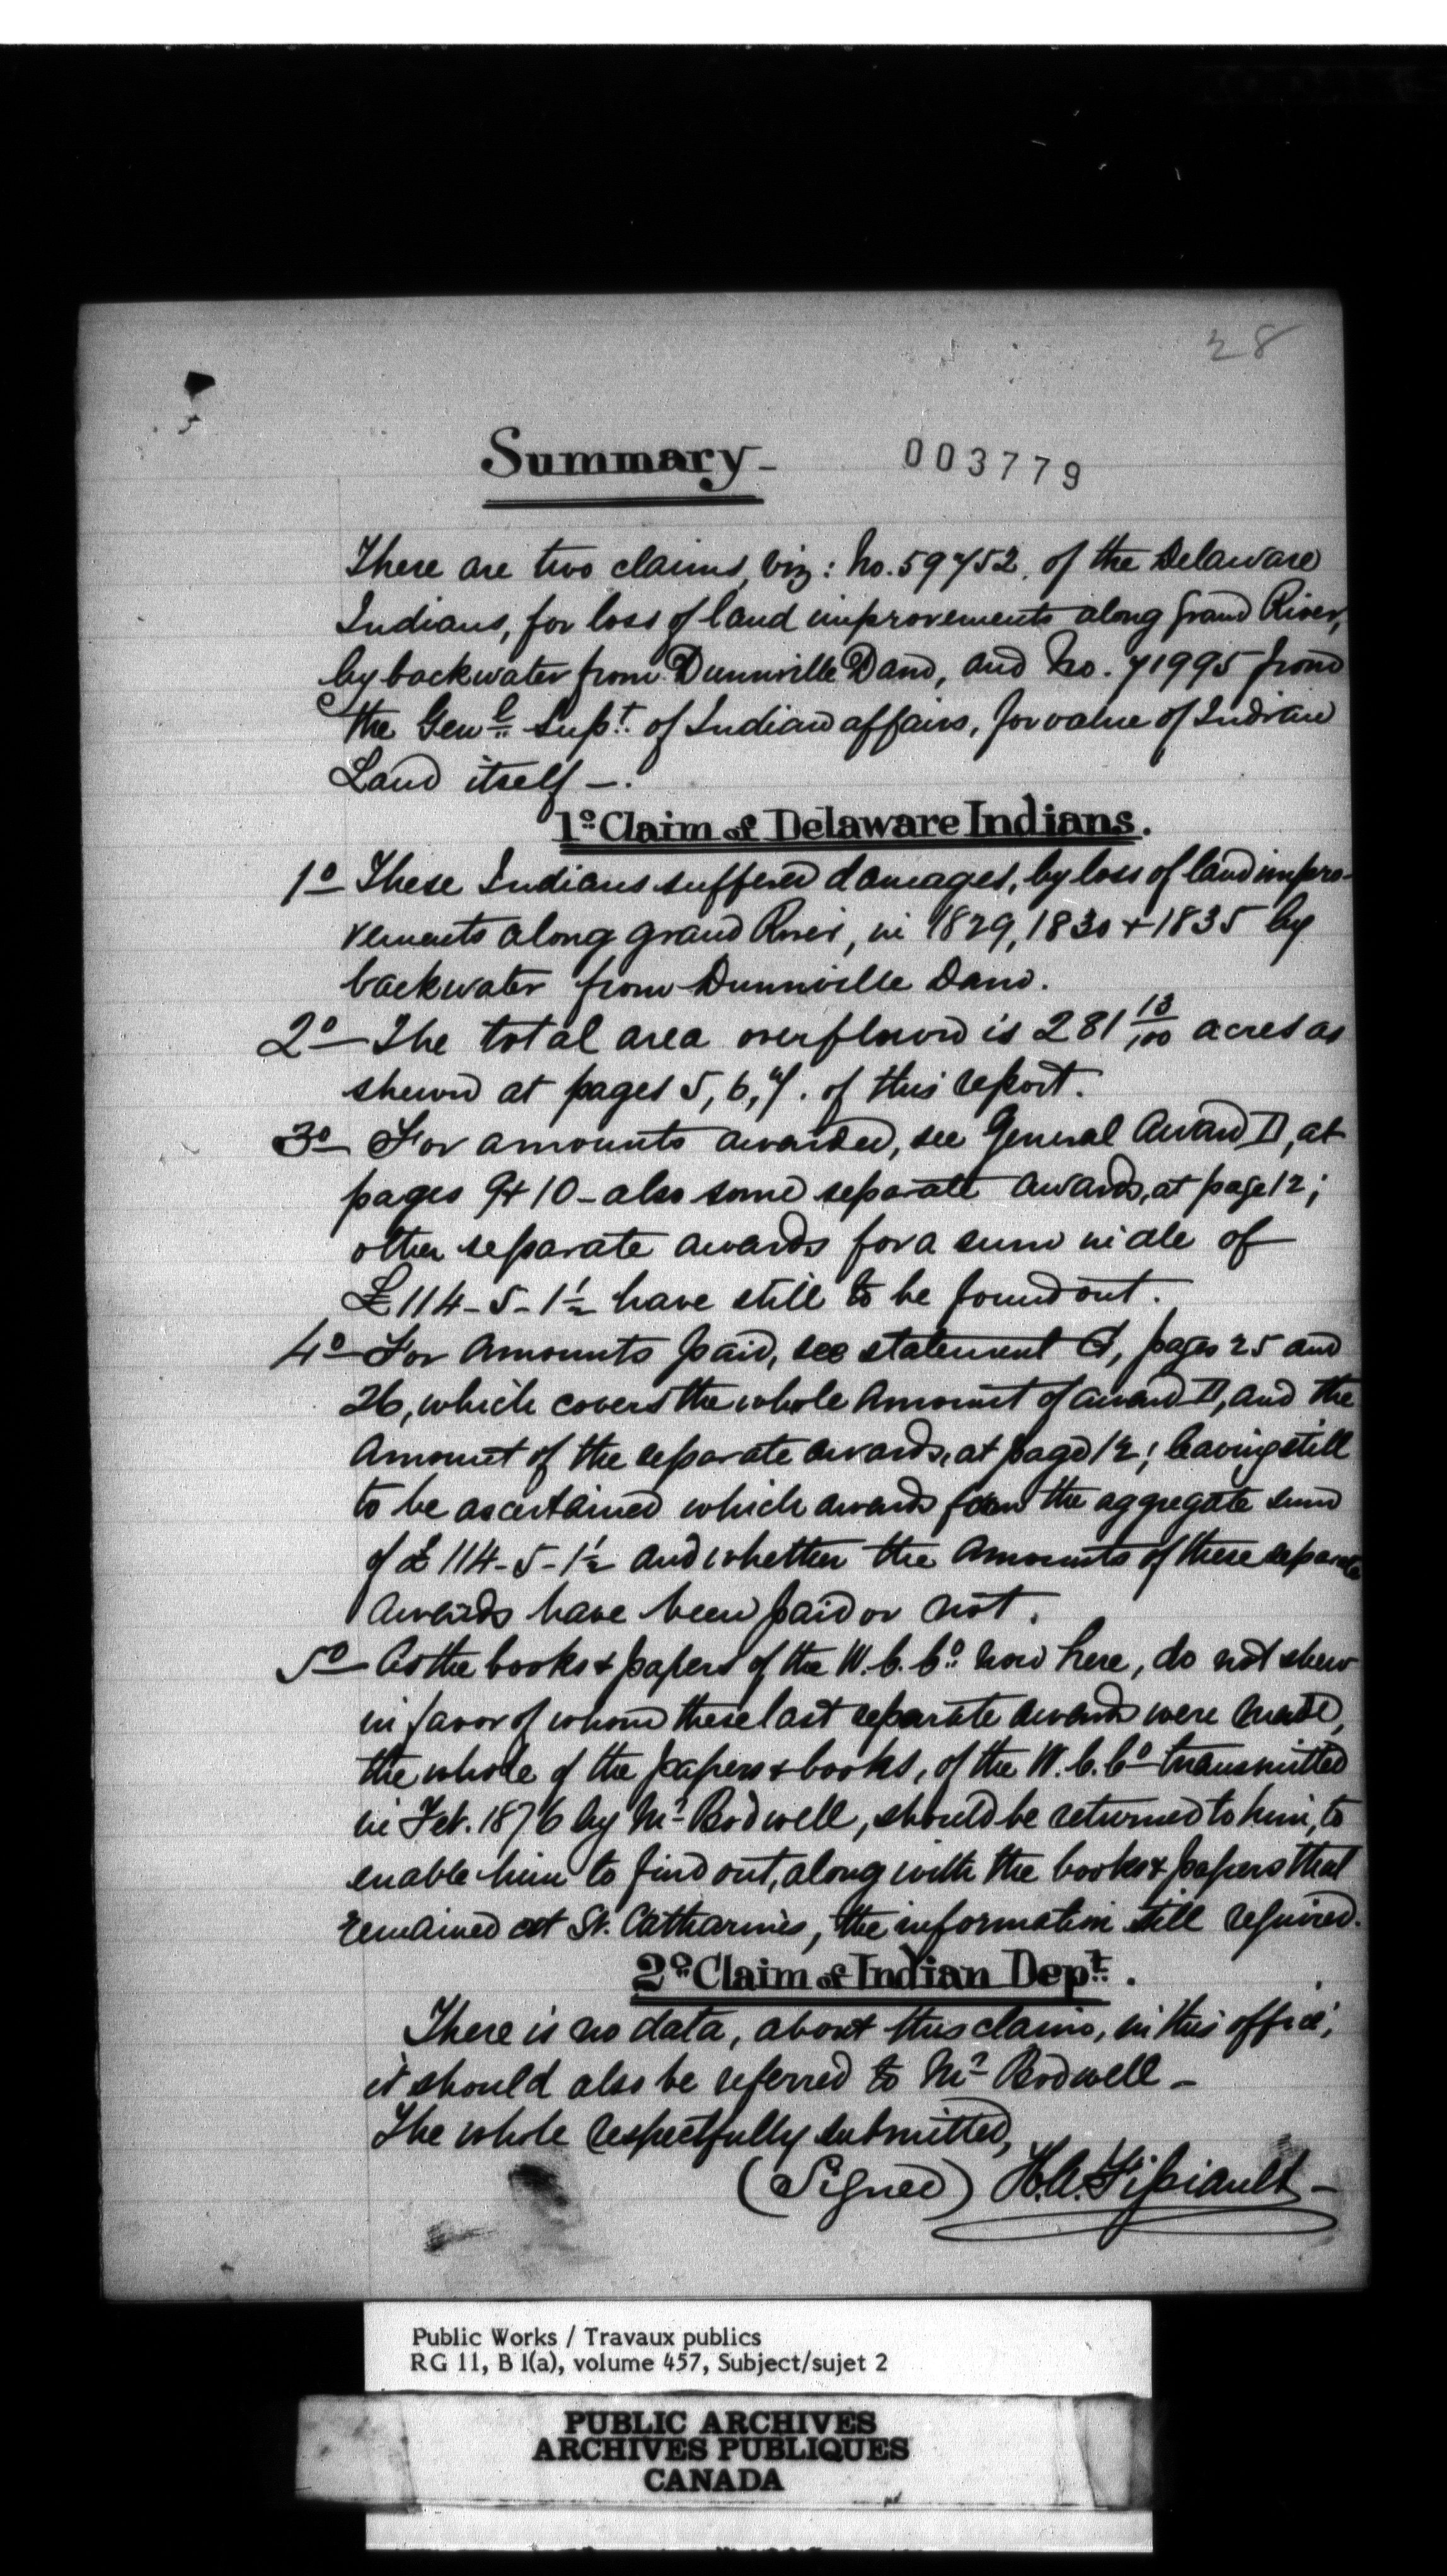 28
Summary_
003779
There are two claims, viz: No. 59752, of the Delaware
Indians, for loss of land improvements along Grand River,
by backwater from Dunnville Dam, and No. 71995 from
the Genl. Supt. of Indian affairs, for value of Indian
Land itself —.
1o. Claim of Delaware Indians.
1o These Indians suffered damages, by loss of land impro-
vements along Grand River, in 1829, 1830 & 1835 by
backwater from Dunnville Dam.
2o — The total area overflowed is 281 13/100 acres as
shewn at pages 5, 6, 7. of this report.
3o — For amounts awarded, see General Award D, at
pages 9 & 10 - also some separate awards, at page 12;
other separate awards for a sum in all of
£114-5-1½ have still to be found out.
4o — For amounts paid, see statement G, pages 25 and
26, which covers the whole amount of award D, and the
amount of the separate awards, at page 12; leaving still
to be ascertained which awards form the aggregate sum
of £114-5-1½ and whether the amounts of these separate
awards have been paid or not.
5o — As the books & papers of the W. C. Co. now here, do not shew
in favor of whom these last separate awards were made,
the whole of the papers & books, of the W. C. Co transmitted
in Feb. 1876 by Mr Bodwell, should be returned to him, to
enable him to find out, along with the books & papers that
remained at St. Catharines, the information still required.
2o. Claim of Indian Dept.
There is no data, about this claim, in this office;
it should also be referred to Mr Bodwell —
The whole respectfully submitted,
(Signed) H.A. Fissiault —
Public Works / Travaux publics
RG 11, B 1(a), volume 457, Subject/sujet 2
PUBLIC ARCHIVES
ARCHIVES PUBLIQUES
CANADA